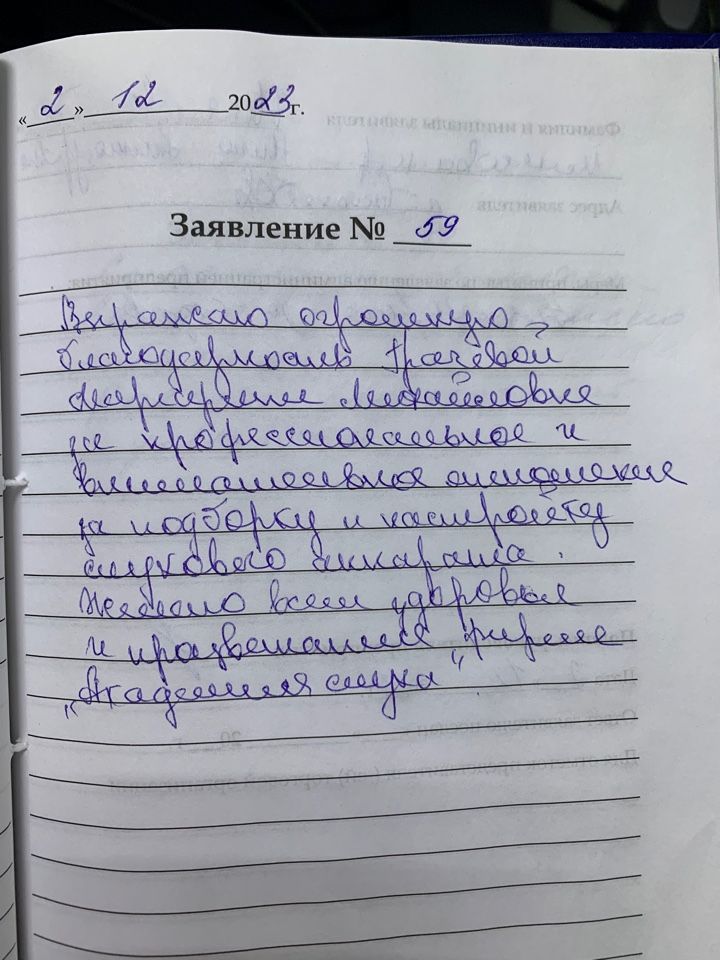 « 2 » 12 2023г.
Заявление № 59
Выражаю огромную
благодарность Грачёвой
Маргарите Михайловне
за профессиональное и
внимательное отношение
за подборку и настройку
слухового аппарата.
Желаю всем здоровья
и процветания фирме
„Академия слуха“